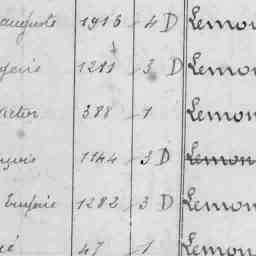 auguste 1916 4 D Lemon
1211 3 D Lemon
Victor 388 1 Lemon
1144 3 D Lemon
Eugénie 1282 3 D Lemon
47 1 Lemon